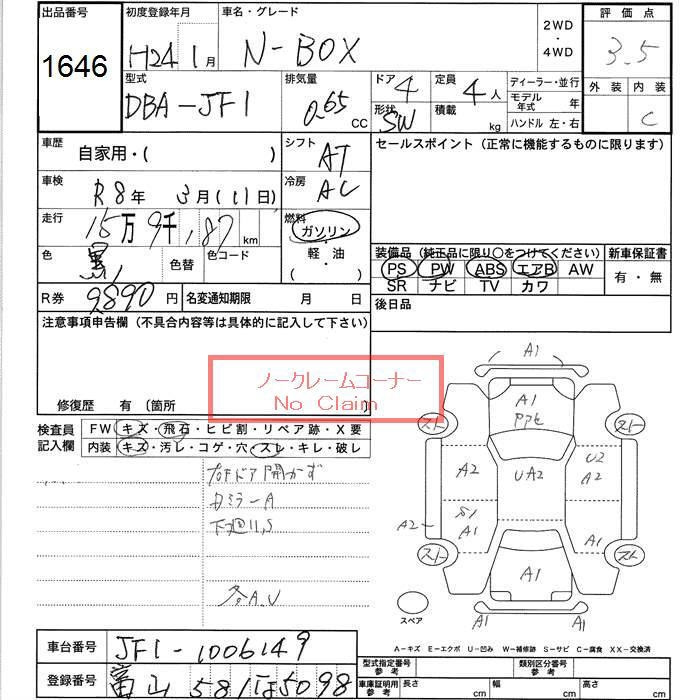 出品番号 初度登録年月 車名・グレード 2WD・4WD 評価点
1646 H24 1月 N-BOX 3.5
型式 排気量 ドア 定員 ディーラー・並行 外装 内装
DBA-JF1 0.65 CC 4 4人 モデル年式 年
形状 SW 積載 kg ハンドル 左・右 C
車歴 自家用・( ) シフト AT セールスポイント（正常に機能するものに限ります）
車検 R8年 3月(11日) 冷房 AC
走行 15万9千187km 燃料 ガソリン・軽・油 ( )
色 黒 色替 色コード
装備品（純正品に限り○をつけてください） 新車保証書
PS PW ABS エアB AW 有・無
SR ナビ TV カワ
R券 9890円 名変通知期限 月 日 後日品
注意事項申告欄（不具合内容等は具体的に記入して下さい）
ノークレームコーナー
No Claim
修復歴 有（箇所
検査員記入欄 FW キズ・飛石・ヒビ割・リペア跡・X要
内装 キズ・汚レ・コゲ・穴・スレ・キレ・破レ
右Fドア開かず
ミラーA
下廻リS
各A.U
A1
A1
スト スト
A2 UA2 U2 A2
A2 S1 A1 A1
スト スト
A1
スペア A1 A1
A-キズ E-エクボ U-凹み W-補修跡 S-サビ C-腐食 XX-交換済
車台番号 JF1-1006149
型式指定番号 参考 類別区分番号 参考
登録番号 富山 581 5098
車庫証明用 参考 長さ cm 幅 cm 高さ cm